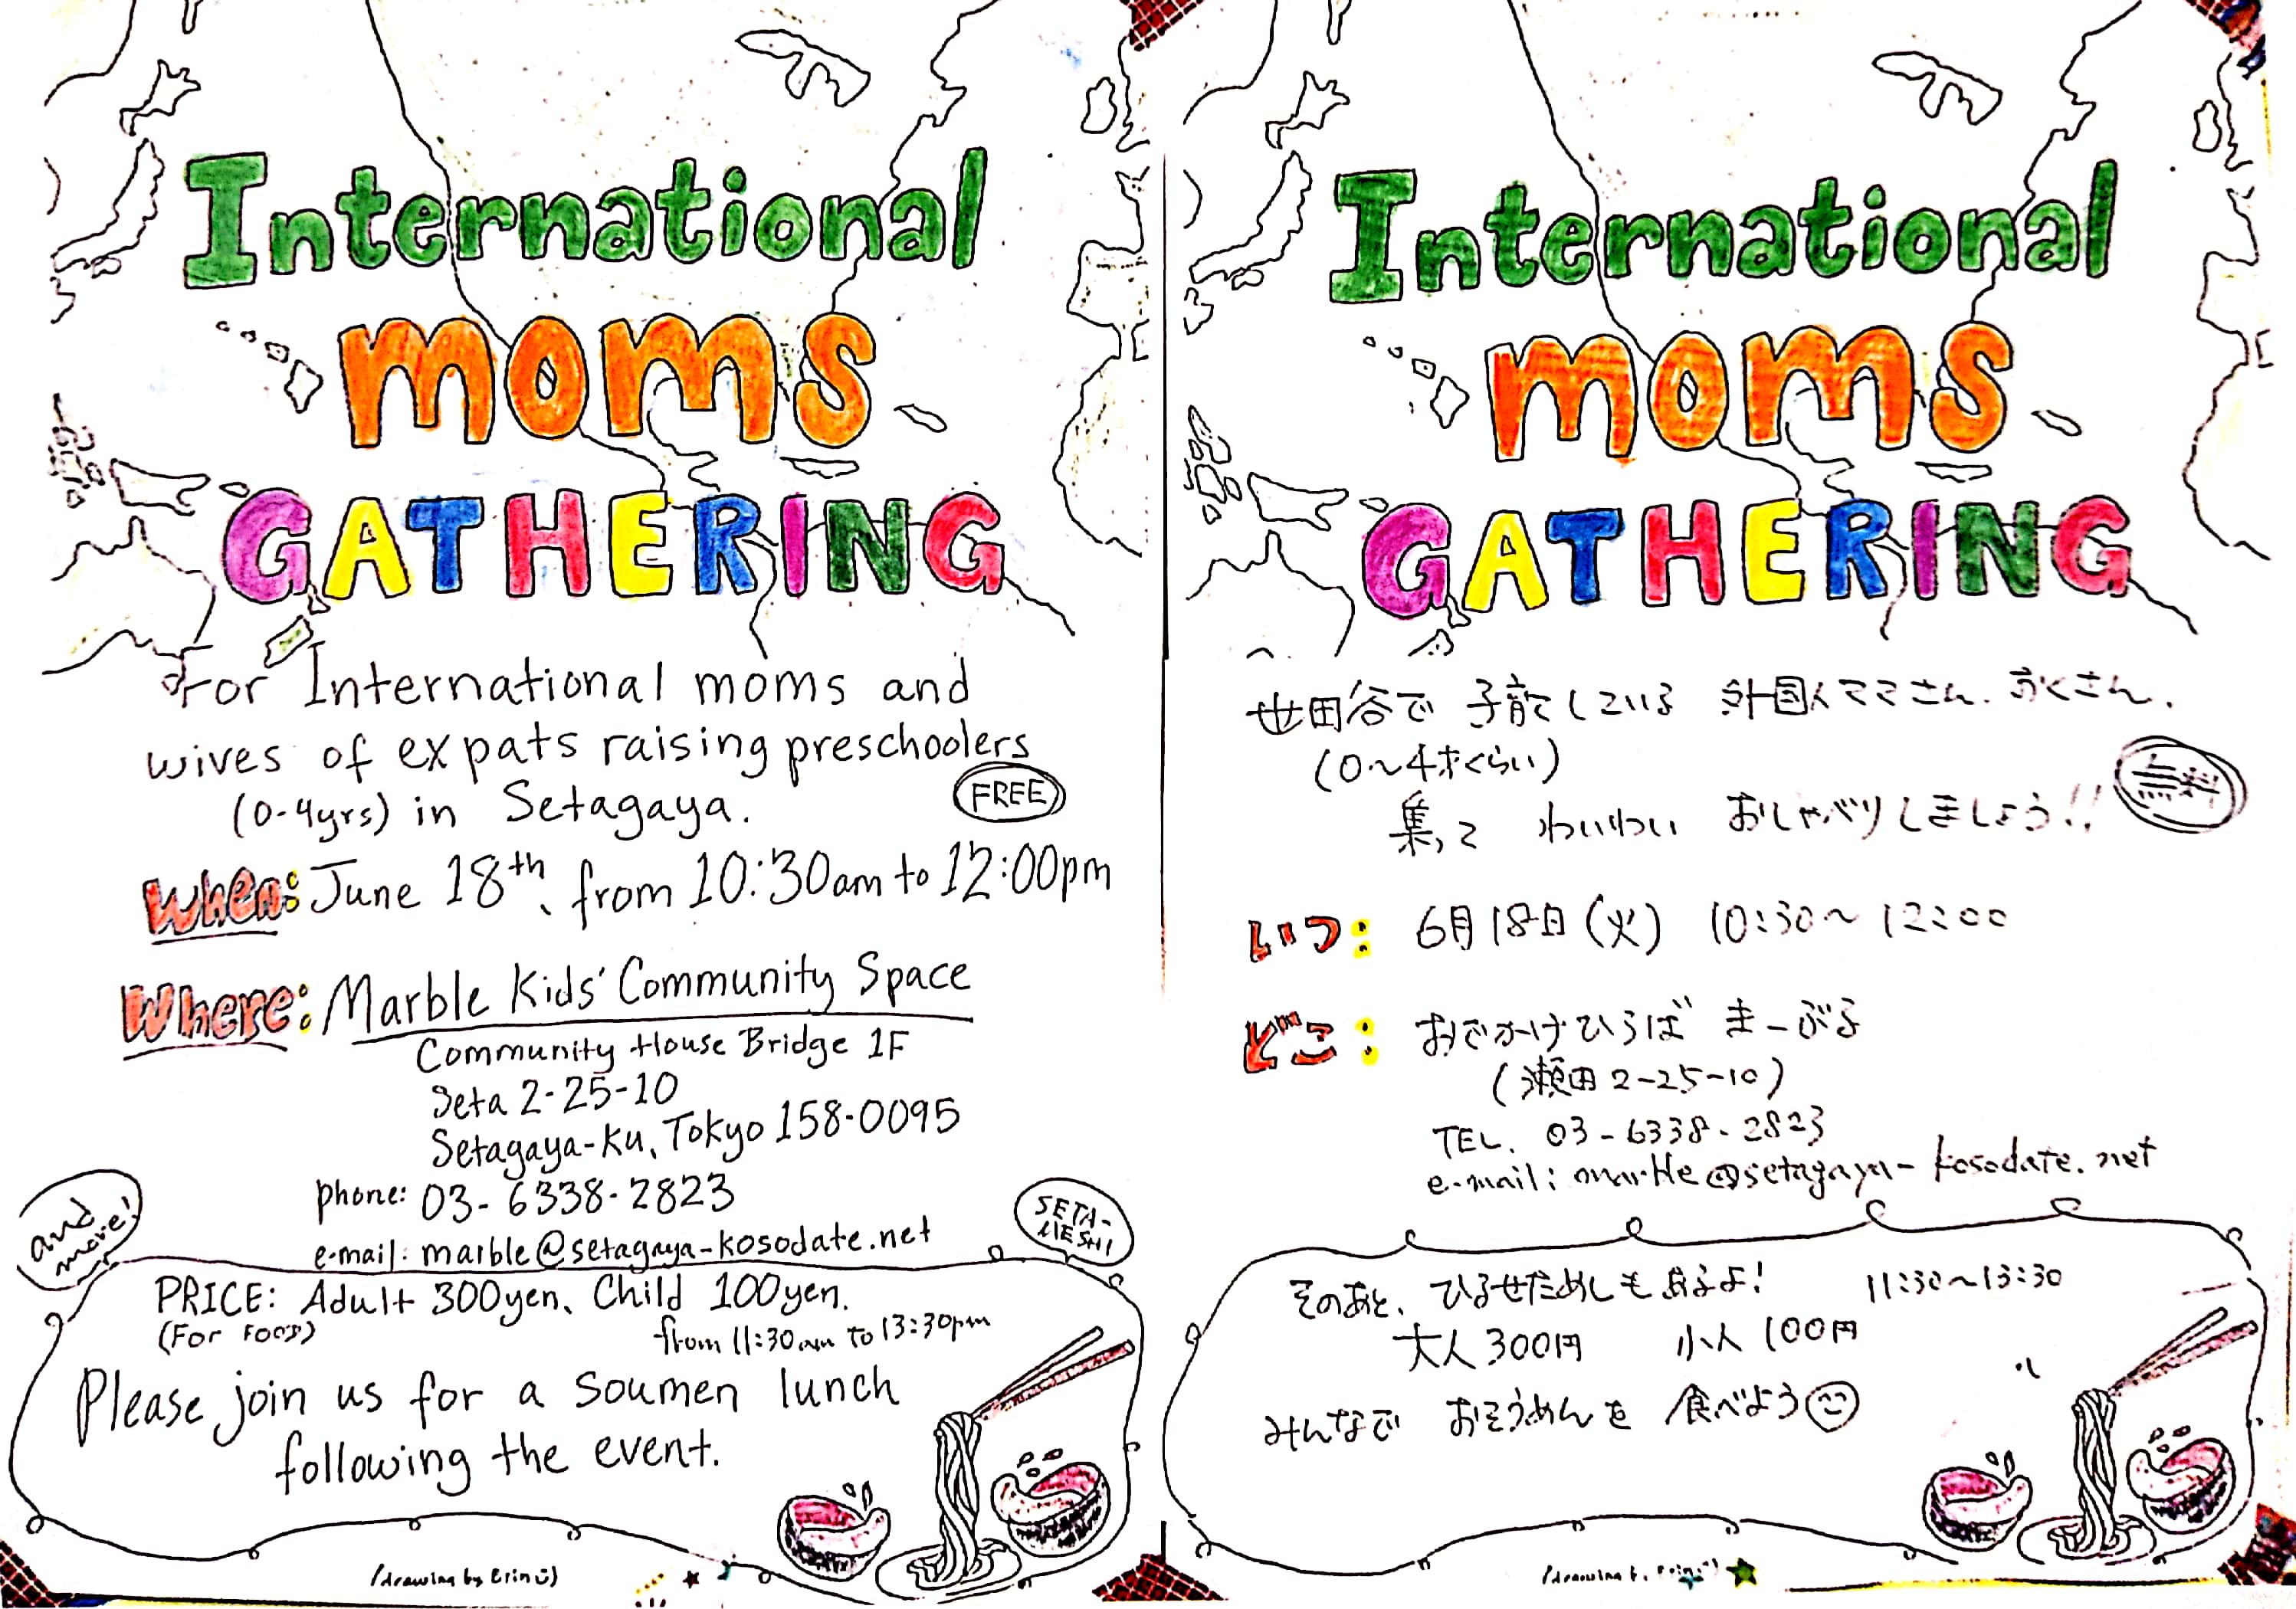 International
moms
GATHERING
For International moms and
wives of expats raising preschoolers
(0-4yrs) in Setagaya.
FREE
When: June 18th、from 10:30am to 12:00pm
Where: Marble Kids' Community Space
Community House Bridge 1F
Seta 2-25-10
Setagaya-ku、Tokyo 158-0095
phone: 03-6338-2823
e-mail: marble@setagaya-kosodate.net
and more!
SETA-MESHI
PRICE: Adult 300yen、Child 100yen.
(For Food)
from 11:30am to 13:30pm
Please join us for a soumen lunch
following the event.
(drawing by Erin :)
International
moms
GATHERING
世田谷で 子育てしている 外国人ママさん、おくさん、
(0〜4才くらい)
集って わいわい おしゃべりしましょう!!
無料
いつ: 6月18日(火) 10:30〜12:00
どこ: おでかけひろば まーぶる
(瀬田2-25-10)
TEL. 03-6338-2823
e-mail: marble@setagaya-kosodate.net
そのあと、ひるせためしもあるよ! 11:30〜13:30
大人300円 小人100円
みんなで おそうめんを 食べよう
(drawing by Erin :)